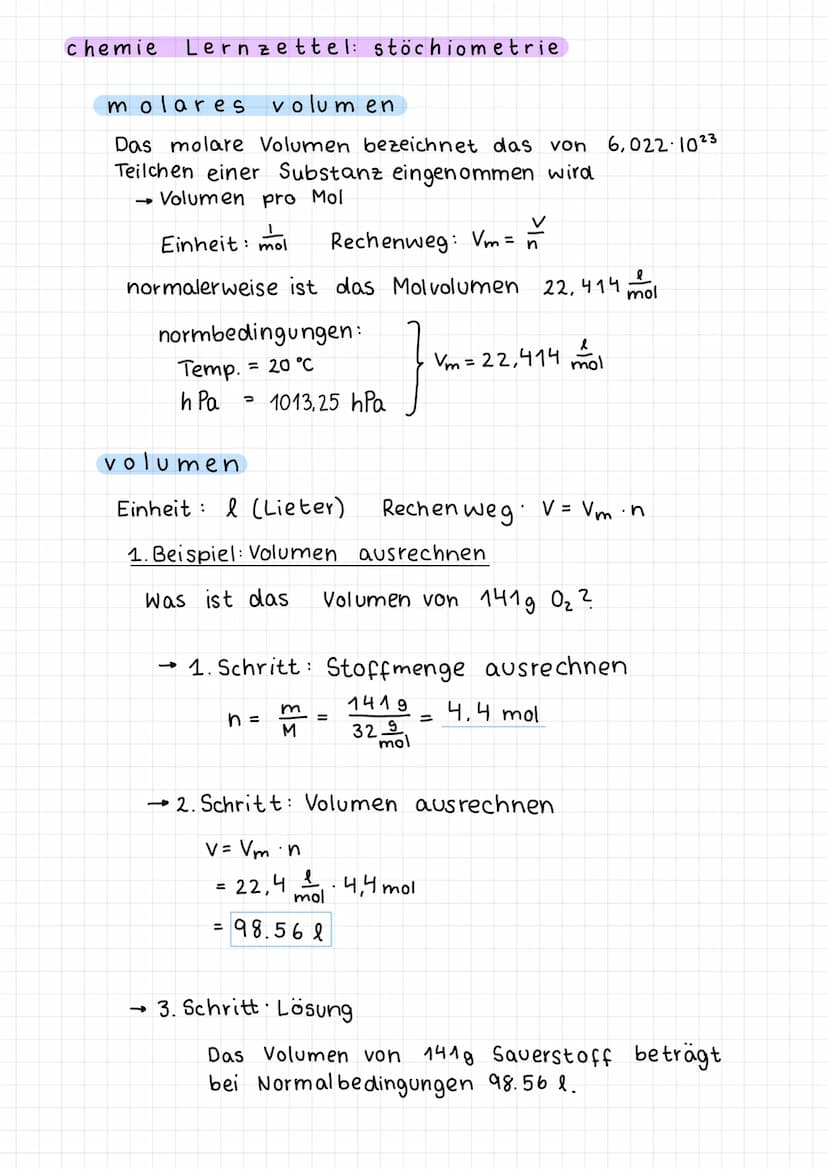 chemie Lernzettel: stöchiometrie
molares volumen
Das molare Volumen bezeichnet das von 6,022·10²³
Teilchen einer Substanz eingenommen wird
→ Volumen pro Mol
Einheit: l/mol Rechenweg: Vm = V/n
normalerweise ist das Molvolumen 22,414 l/mol
normbedingungen:
Temp. = 20 °C
hPa = 1013,25 hPa
Vm = 22,414 l/mol
volumen
Einheit: l (Lieter) Rechenweg: V = Vm · n
1. Beispiel: Volumen ausrechnen
Was ist das Volumen von 141g O₂?
→ 1. Schritt: Stoffmenge ausrechnen
n = m/M = 141g / 32 g/mol = 4.4 mol
→ 2. Schritt: Volumen ausrechnen
V = Vm · n
= 22,4 l/mol · 4,4 mol
= 98.56 l
→ 3. Schritt: Lösung
Das Volumen von 141g Sauerstoff beträgt
bei Normalbedingungen 98.56 l.